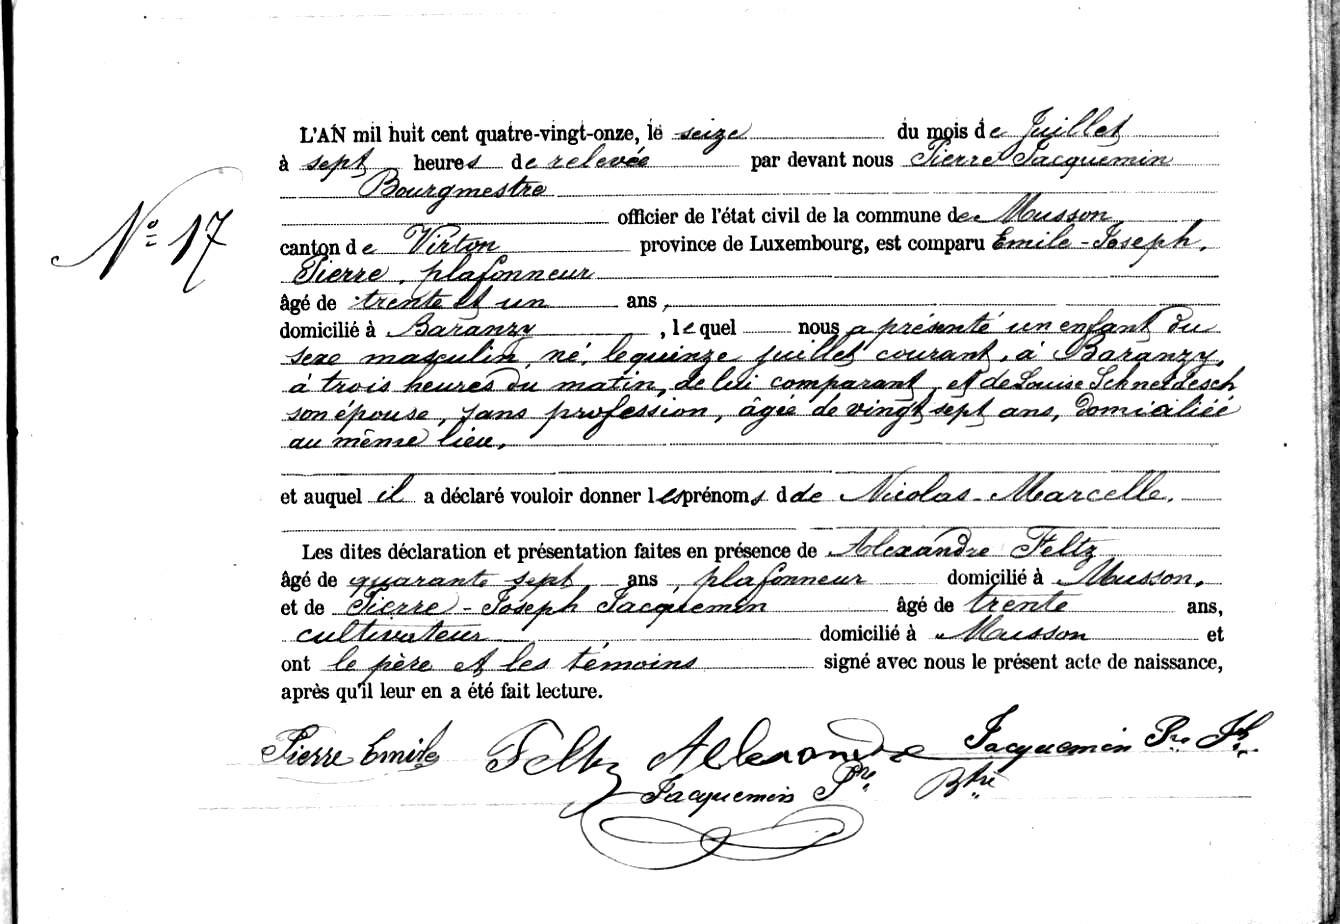 L'AN mil huit cent quatre-vingt-onze, le seize du mois de Juillet
à sept heures de relevée par devant nous Pierre Jacquemin
Bourgmestre
officier de l'état civil de la commune de Musson,
N° 17
canton de Virton province de Luxembourg, est comparu Emile-Joseph,
Pierre, plafonneur
âgé de trente et un ans,
domicilié à Baranzy, lequel nous a présenté un enfant du
sexe masculin, né, le quinze juillet courant, à Baranzy,
à trois heures du matin, de lui comparant, et de Louise Schneidesch
son épouse, sans profession, âgée de vingt sept ans, domiciliée
au même lieu.
et auquel il a déclaré vouloir donner les prénoms d de Nicolas-Marcelle.
Les dites déclaration et présentation faites en présence de Alexandre Feltz
âgé de quarante sept ans, plafonneur domicilié à Musson,
et de Pierre-Joseph Jacquemin âgé de trente ans,
cultivateur domicilié à Musson et
ont le père et les témoins signé avec nous le présent acte de naissance,
après qu'il leur en a été fait lecture.
Pierre Emile Feltz Alexandre Jacquemin Pre Jh
Jacquemin Pre Btre